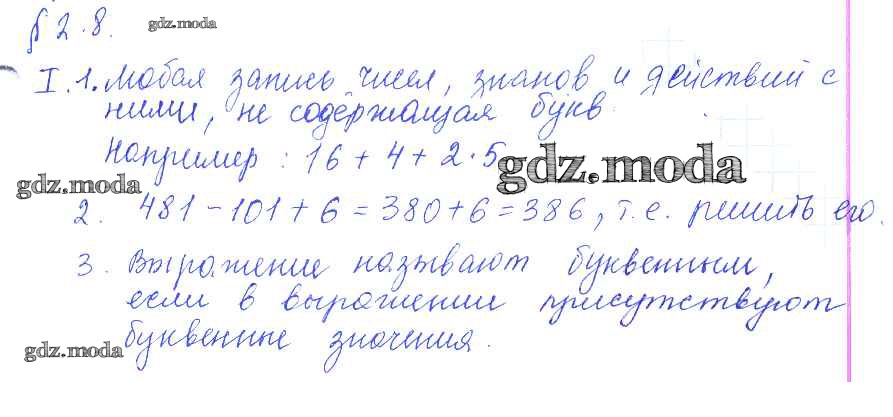 § 2.8. gdz.moda
I. 1. Любая запись чисел, знаков и действий с
ними, не содержащая букв.
Например: 16 + 4 + 2 · 5 gdz.moda
gdz.moda
2. 481 – 101 + 6 = 380 + 6 = 386, т.е. решить его.
3. Выражение называют буквенным,
если в выражении присутствуют
буквенные значения.
gdz.moda